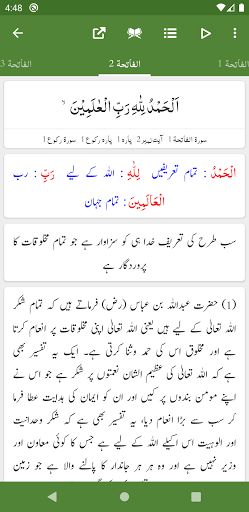 4:48
الفاتحة 3
الفاتحة 2
الفاتحة 1
اَلْحَمْدُ لِلّٰهِ رَبِّ الْعٰلَمِيْنَ ۙ
سورۃ الفاتحۃ 1 آیت نمبر 2 پارہ 1 پارہ رکوع 1 سورۃ رکوع 1
اَلْحَمْدُ : تمام تعریفیں لِلّٰهِ : اللہ کے لیے رَبِّ : رب
الْعَالَمِينَ : تمام جہان
سب طرح کی تعریف خدا ہی کو سزاوار ہے جو تمام مخلوقات کا
پروردگار ہے
(1) حضرت عبداللہ بن عباس (رض) فرماتے ہیں کہ تمام شکر
اللہ تعالیٰ کے لیے ہیں یعنی اللہ تعالیٰ اپنی مخلوقات پر انعام کرتا
ہے اور مخلوق اس کی حمد وثنا کرتی ہے۔ ایک یہ تفسیر بھی
ہے کہ اللہ تعالیٰ کی عظیم الشان نعمتوں پر شکر ہے جو اس نے
اپنے مومن بندوں پر کیں اور ان کو ایمان کی ہدایت عطا فرما
کر سب سے بڑا انعام دیا، یہ تفسیر بھی ہے کہ شکر وحدانیت
اور الوہیت اس اکیلے اللہ کے لیے ہے جس کا کوئی معاون اور
وزیر نہیں ہے اور وہ ہر ہر جاندار کا پالنے والا ہے جو زمین